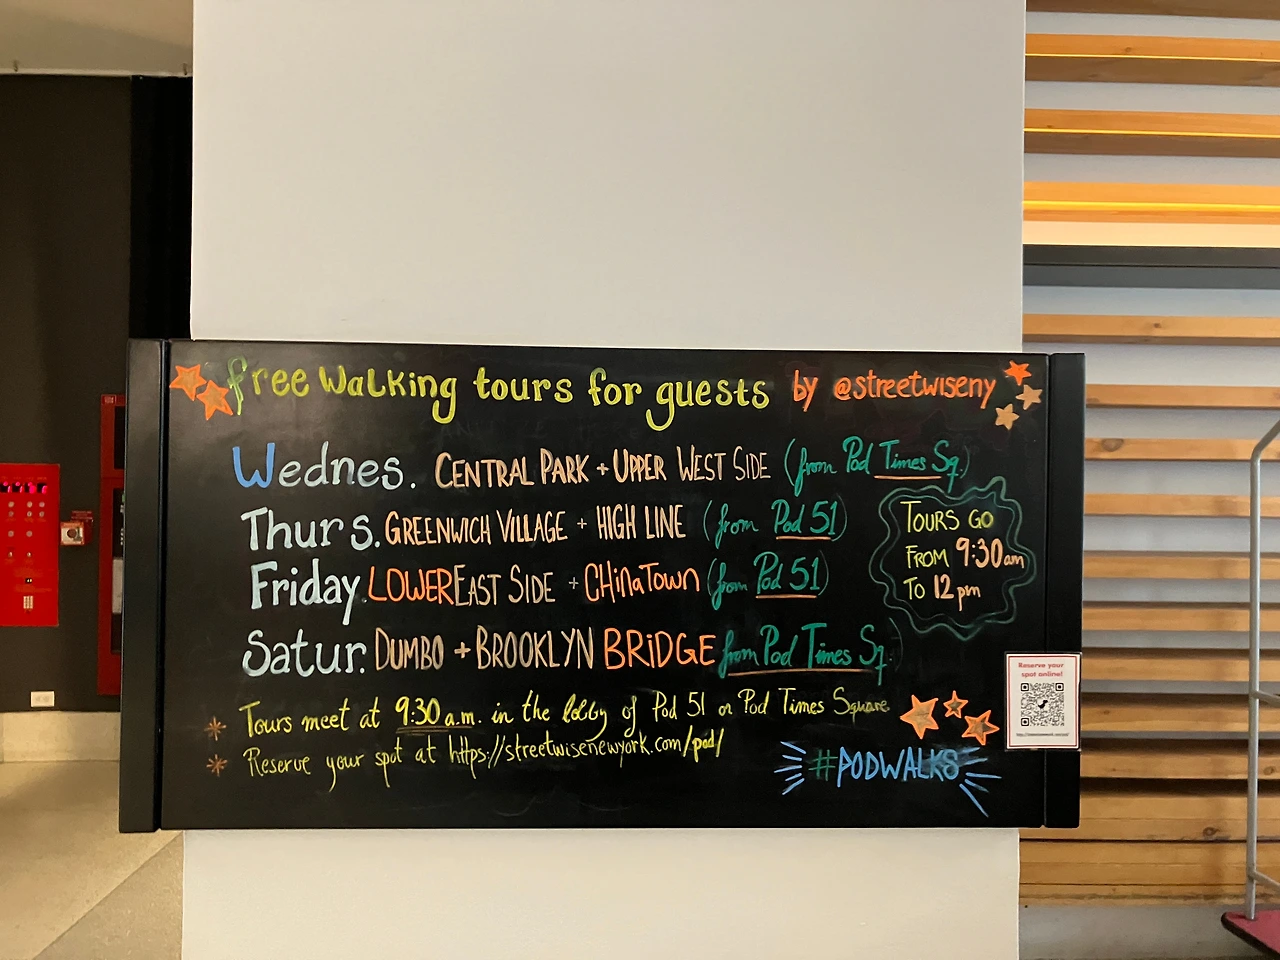 free Walking tours for guests by @streetwiseny
Wednes. CENTRAL PARK + UPPER WEST SIDE (from Pod Times Sq.)
Thurs. GREENWICH VILLAGE + HIGH LINE (from Pod 51)
Friday. LOWER EAST SIDE + CHiNaTown (from Pod 51)
Satur. DUMBO + BROOKLYN BRiDGE from Pod Times Sq.)
TOURS GO
FROM 9:30am
TO 12 pm
* Tours meet at 9:30 a.m. in the lobby of Pod 51 or Pod Times Square
* Reserve your spot at https://streetwisenewyork.com/pod/
#PODWALKS
Reserve your
spot online!